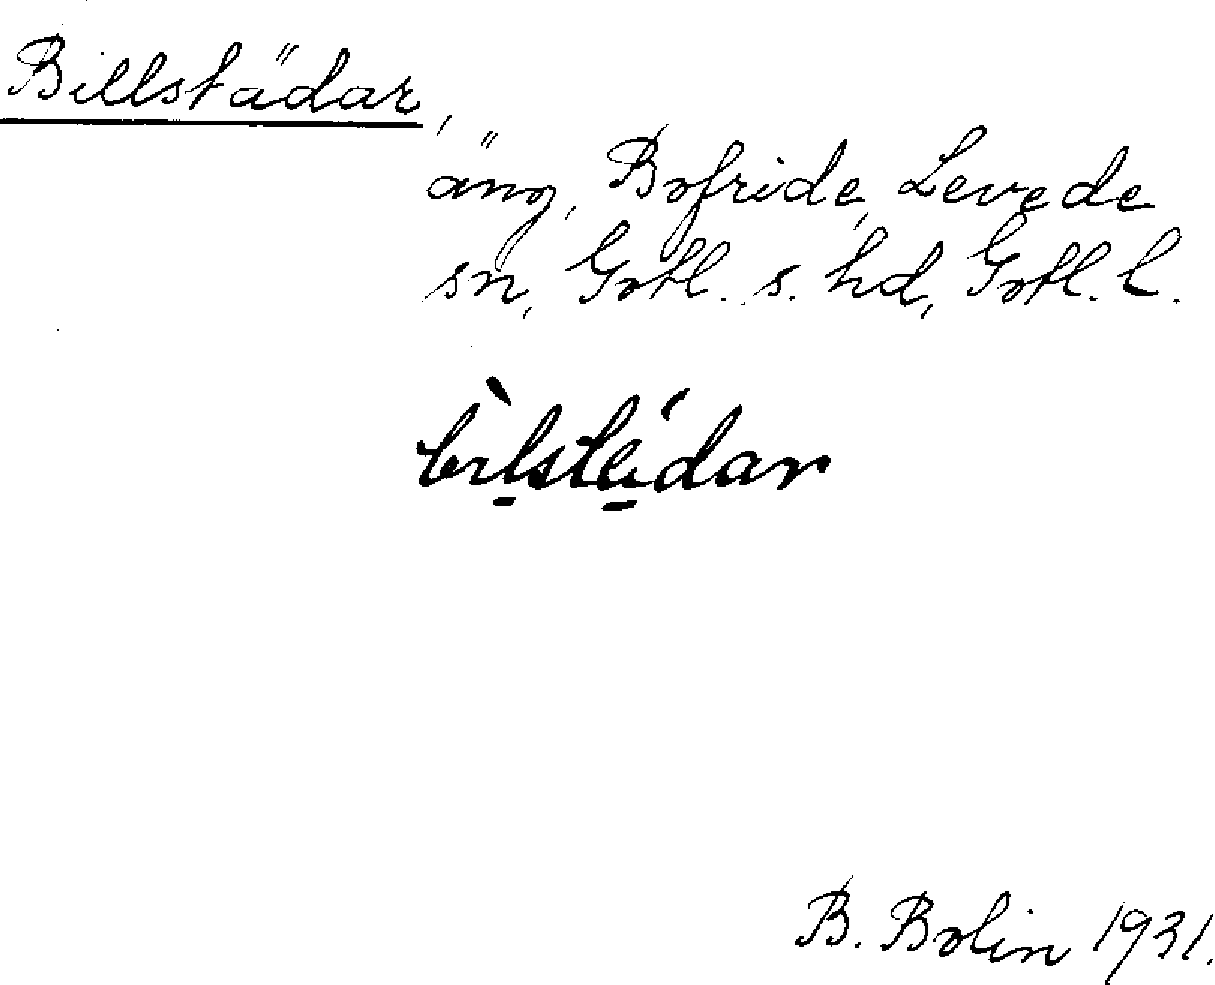 Billstädar,
äng, Bofride, Levede
sn, Gotl. s. hd, Gotl. l.
bìlstédar
B. Bolin 1931.